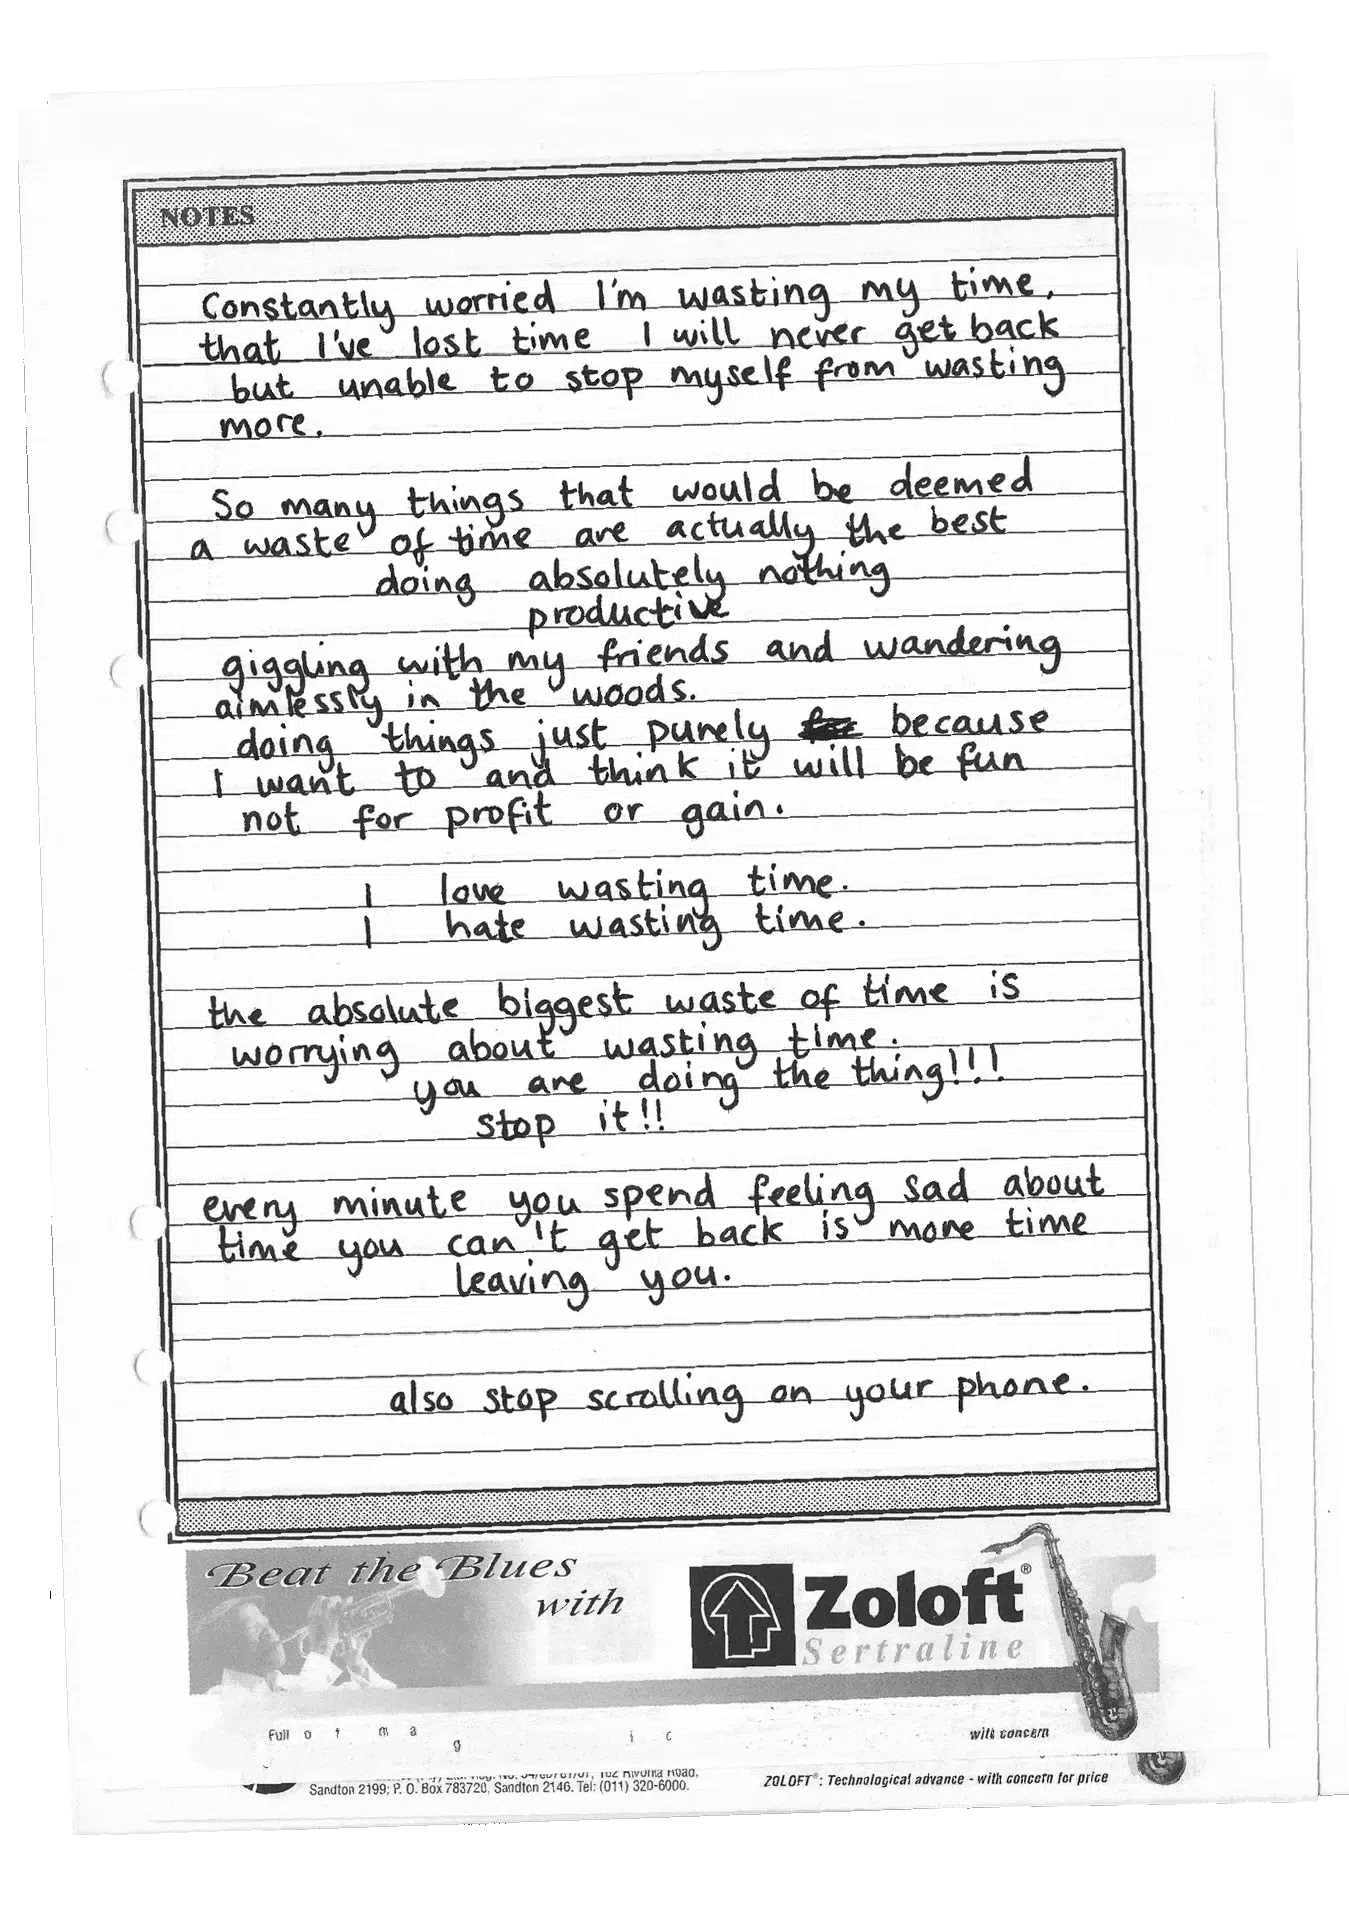 NOTES
Constantly worried I'm wasting my time,
that I've lost time I will never get back
but unable to stop myself from wasting
more.
So many things that would be deemed
a waste of time are actually the best
doing absolutely nothing
productive
giggling with my friends and wandering
aimlessly in the woods.
doing things just purely because
I want to and think it will be fun
not for profit or gain.
I love wasting time.
I hate wasting time.
the absolute biggest waste of time is
worrying about wasting time.
you are doing the thing!!!
stop it!!
every minute you spend feeling sad about
time you can't get back is more time
leaving you.
also stop scrolling on your phone.
Beat the Blues
with
Zoloft®
Sertraline
Full of magic
with concern
Rivonia Road,
Sandton 2199; P. O. Box 783720, Sandton 2146. Tel: (011) 320-6000.
ZOLOFT®: Technological advance - with concern for price